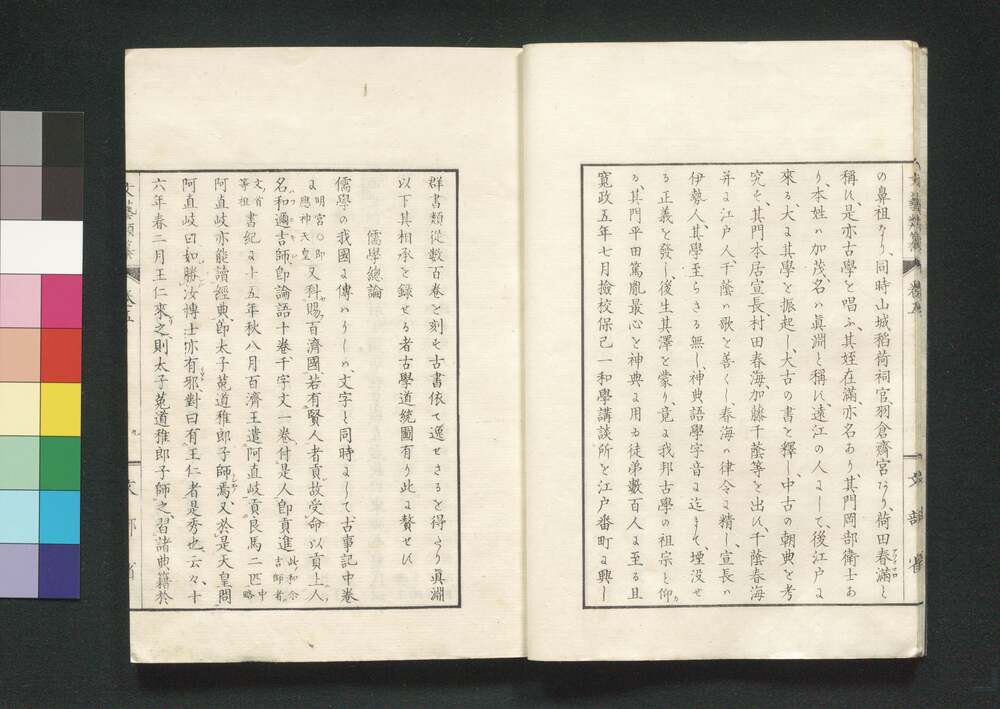 の鼻祖なり、同時山城稻荷祠官、羽倉齋宮あり、荷田春滿と
稱ㇲ、是亦古學を唱ふ、其姪在滿亦名あり、其門岡部衛士あ
り、本姓ハ加茂、名ハ眞淵と稱ㇲ、遠江の人にして、後江戸に
來る、大に其學を振起し、大古の書を釋し、中古の朝典を考
究す、其門本居宣長村田春海、加藤千蔭等を出ㇲ、千蔭春海
并に江戸人、千蔭ハ歌を善くし、春海ハ律令に精し、宣長ハ
伊勢人、其學至らさる無し、神典語學字音に迄まて、堙沒せ
る正義を發し、後生其澤を蒙り、竟に我邦古學の祖宗と仰
る、其門平田篤胤最心を神典に用ゐ徒弟數百人に至る且
寛政五年七月撿校保己一和學講談所を江戸番町に興し
文藝類纂 卷五
文部省
群書類從數百卷を刻す古書依て逸せさるを得たり眞淵
以下其相承を録せる者古學道統圖有り此に贅せㇲ
儒學總論
儒學の我國に傳ハりしハ、文字と同時にして、古事記中卷
に 明宮○即應神天皇 又科賜百濟國、若有賢人者貢、故受命以貢上人、
名和邇吉師、即論語十卷千字文一卷、付是人即貢進 此和尒吉師者
文首等祖 書紀に十五年秋八月百濟王遣阿直岐貢良馬二匹 中略
阿直岐亦能讀經典、即太子菟道稚郎子師焉、又於是天皇問
阿直岐曰如勝汝博士亦有邪、對曰有王仁者是秀也、云々、十
六年春二月王仁來之、則太子菟道稚郎子師之、習諸典籍於
文藝類纂 卷五
九 文部省